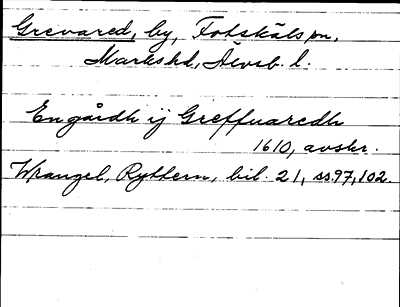 Grevared, by, Fotskäls sn,
Marks hd, Älvsb. l.
En gårdh ij Greffuaredh
1610, avskr.
Wrangel, Ryttern, bil. 21, ss. 97, 102.